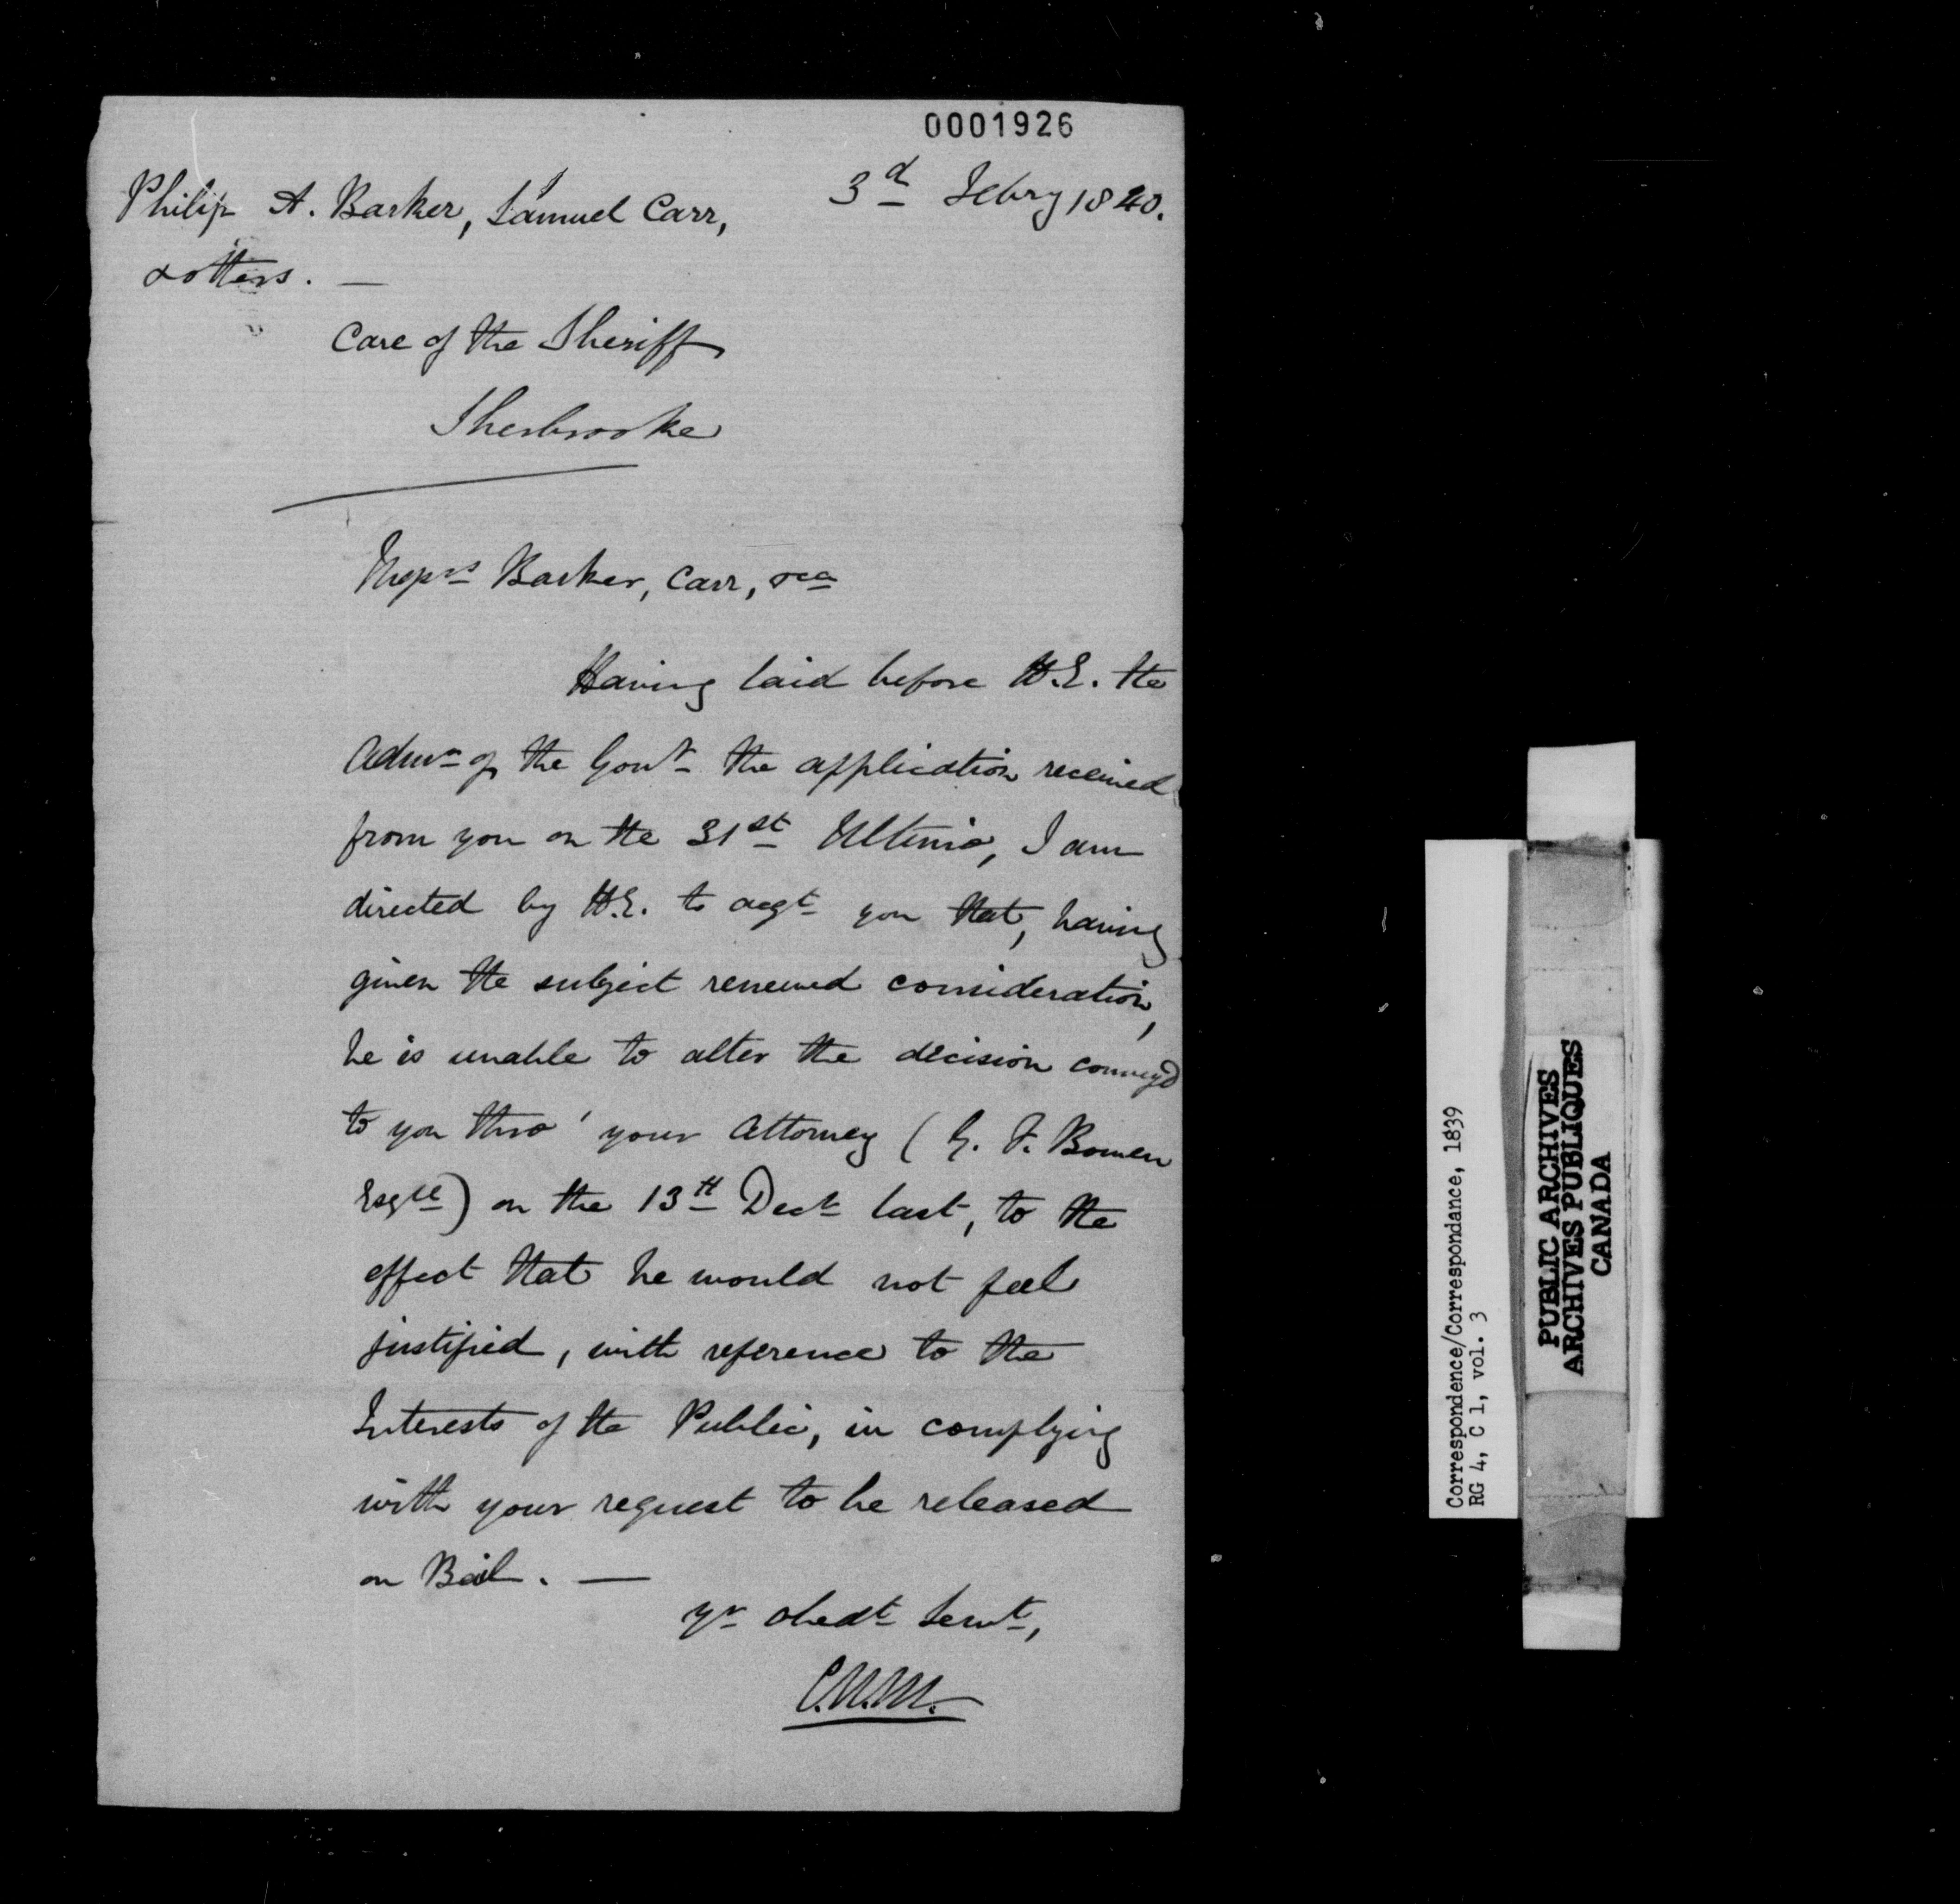 0001926
3d Febry 1840.
Philip A. Barker, Samuel Carr,
& others. —
Care of the Sheriff
Sherbrooke
Messrs Barker, Carr, &ca
Having laid before H.E. the
Admr of the Govt the application received
from you on the 31st Ultimo, I am
directed by H.E. to acqt you that, having
given the subject renewed consideration,
he is unable to alter the decision conveyd
to you thro' your Attorney (G. F. Bowen
Esqre) on the 13th Decr last, to the
effect that he would not feel
justified, with reference to the
Interests of the Public, in complying
with your request to be released
on Bail. —
Yr obedt Servt,
C.M.M.
Correspondence/Correspondance, 1839
RG 4, C 1, vol. 3
PUBLIC ARCHIVES
ARCHIVES PUBLIQUES
CANADA